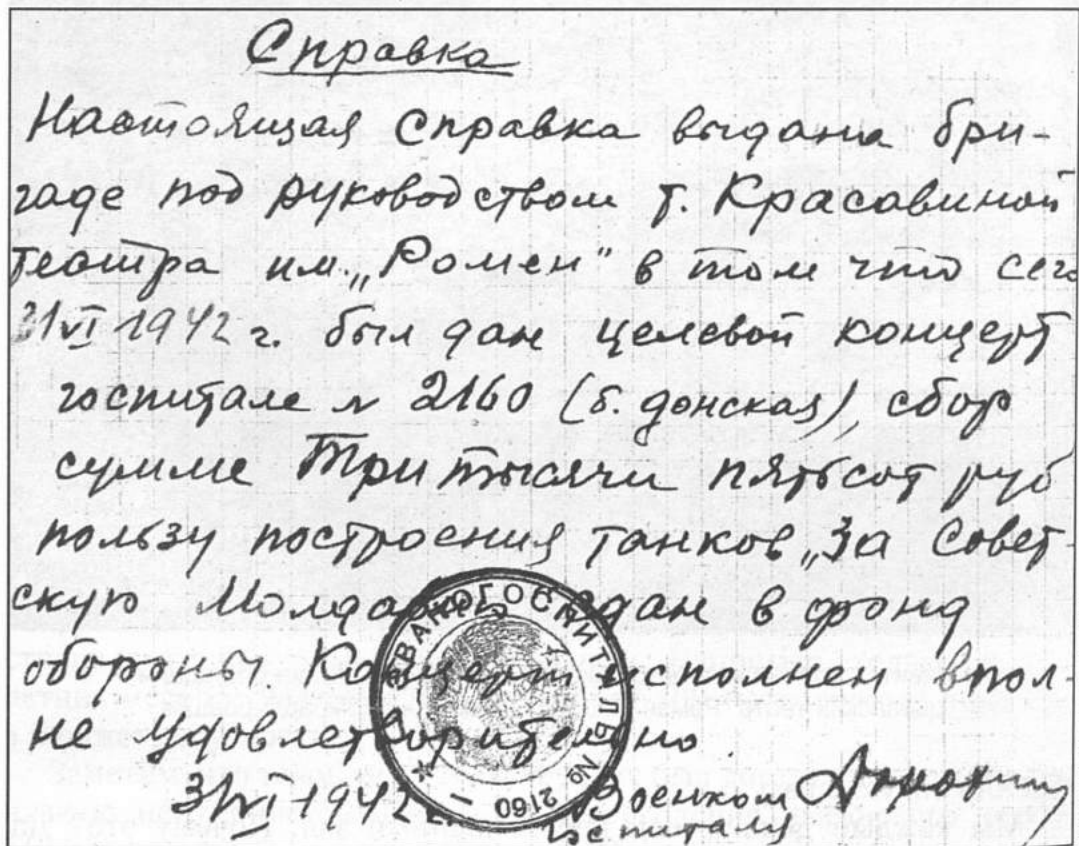 Справка
Настоящая справка выдана бри-
гаде под руководством т. Красавиной
театра им. „Ромен" в том что сего
31 VI 1942 г. был дан целевой концерт
госпитале № 2160 (б. донская), сбор
сумме Три тысячи пятьсот руб
пользу построения танков „За Совет-
скую Молдавию сдан в фонд
обороны Концерт исполнен впол-
не удовлетворительно.
31 VI 1942 г. Военком
госпиталя
ЭВАКОГОСПИТАЛЬ № 2160